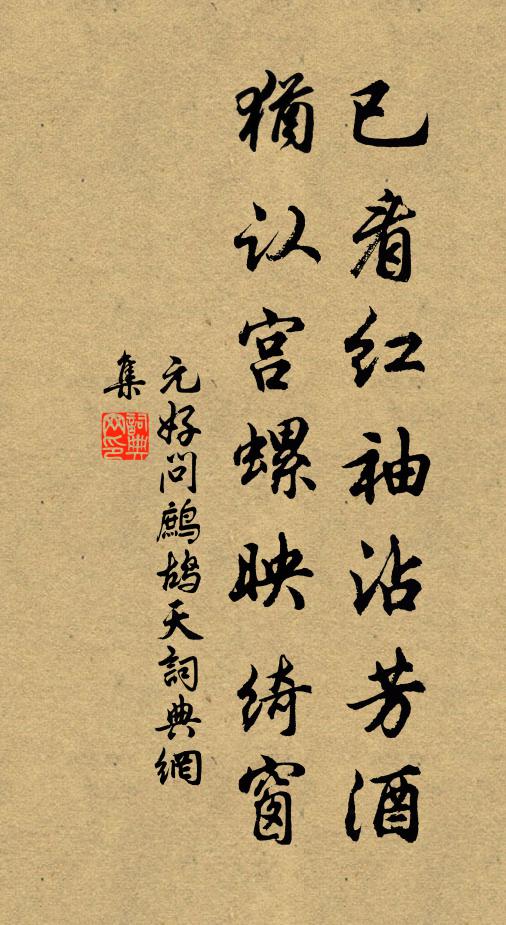 已看红袖沾芳酒
猶认宫螺映绮窗
元好问鹧鸪天詞典網
集
詞典網印